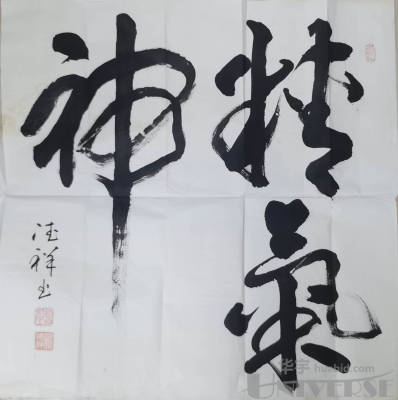 精氣
神
德祥书
华宇 huabid.com
UNIVERSE